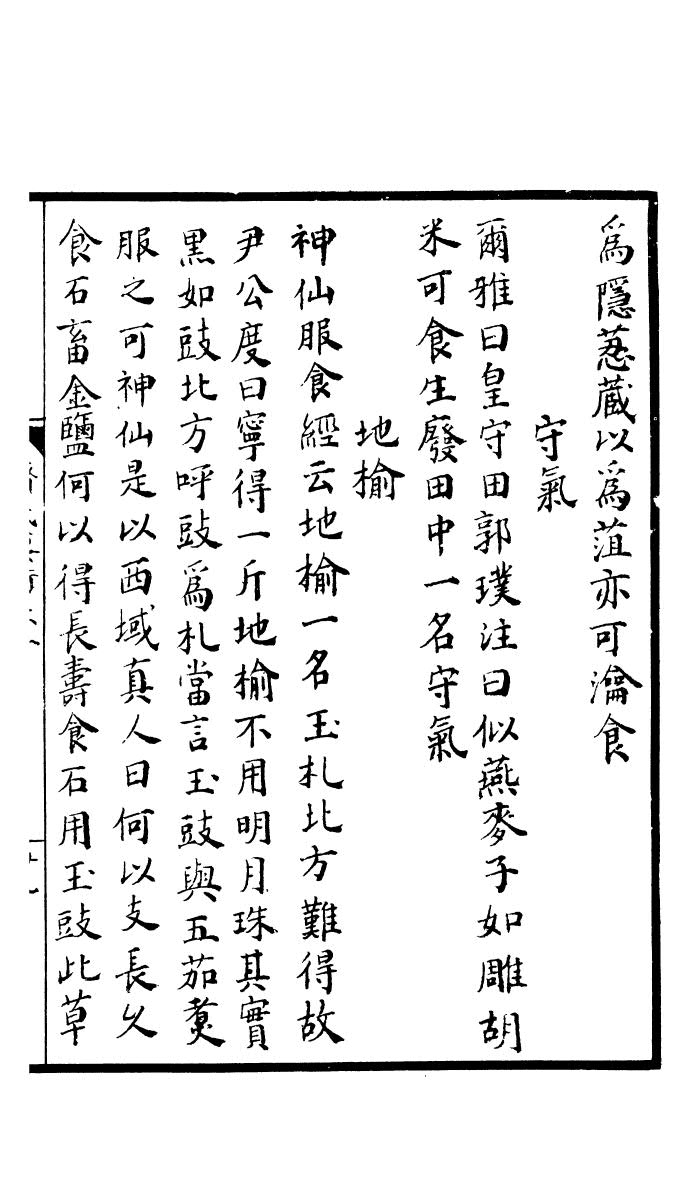 爲隱荵蔵以爲菹亦可瀹食
守氣
爾雅曰皇守田郭璞注曰似燕麥子如雕胡
米可食生廢田中一名守氣
地榆
神仙服食經云地榆一名玉札北方難得故
尹公度曰寧得一斤地榆不用明月珠其實
黒如豉北方呼豉爲札當言玉豉與五茄煑
服之可神仙是以西域真人曰何以支長久
食石畜金鹽何以得長壽食石用玉豉此草